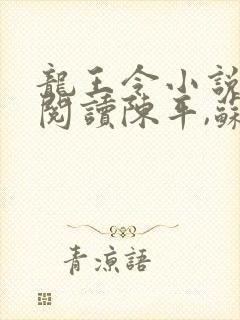 龍王令小說
閱讀陳平,蘇
青涼語